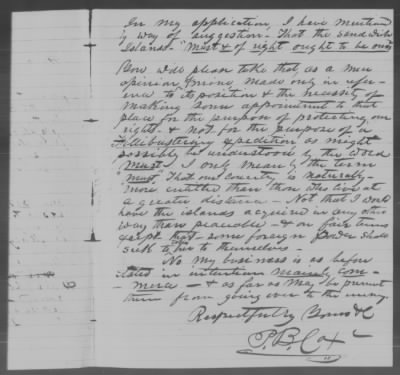 In my application, I have mentioned
by way of suggestion - That the Sandwich
Islands - "Must & of right ought to be ours"
You will please take that, as a mere
opinion of mine made only in refer-
ence to its position & the necessity of
making some appointment to that
place for the purpose of protecting our
rights - & not for the purpose of a
Fillibustering expedition as might
possibly be understood by the word
Must - I only mean by the term
must that our country is naturally -
more entitled than those who live at
a greater distance - Not that I would
have the islands acquired in any other
way than peacable - & on fair terms
except that some foreign power shall
seek to to themselves -
No my business is as before
stated in intention merely Com-
merce - & as far as may be prevent
them from going over to the enemy.
Respectfully Yours &c
P. B. Cox